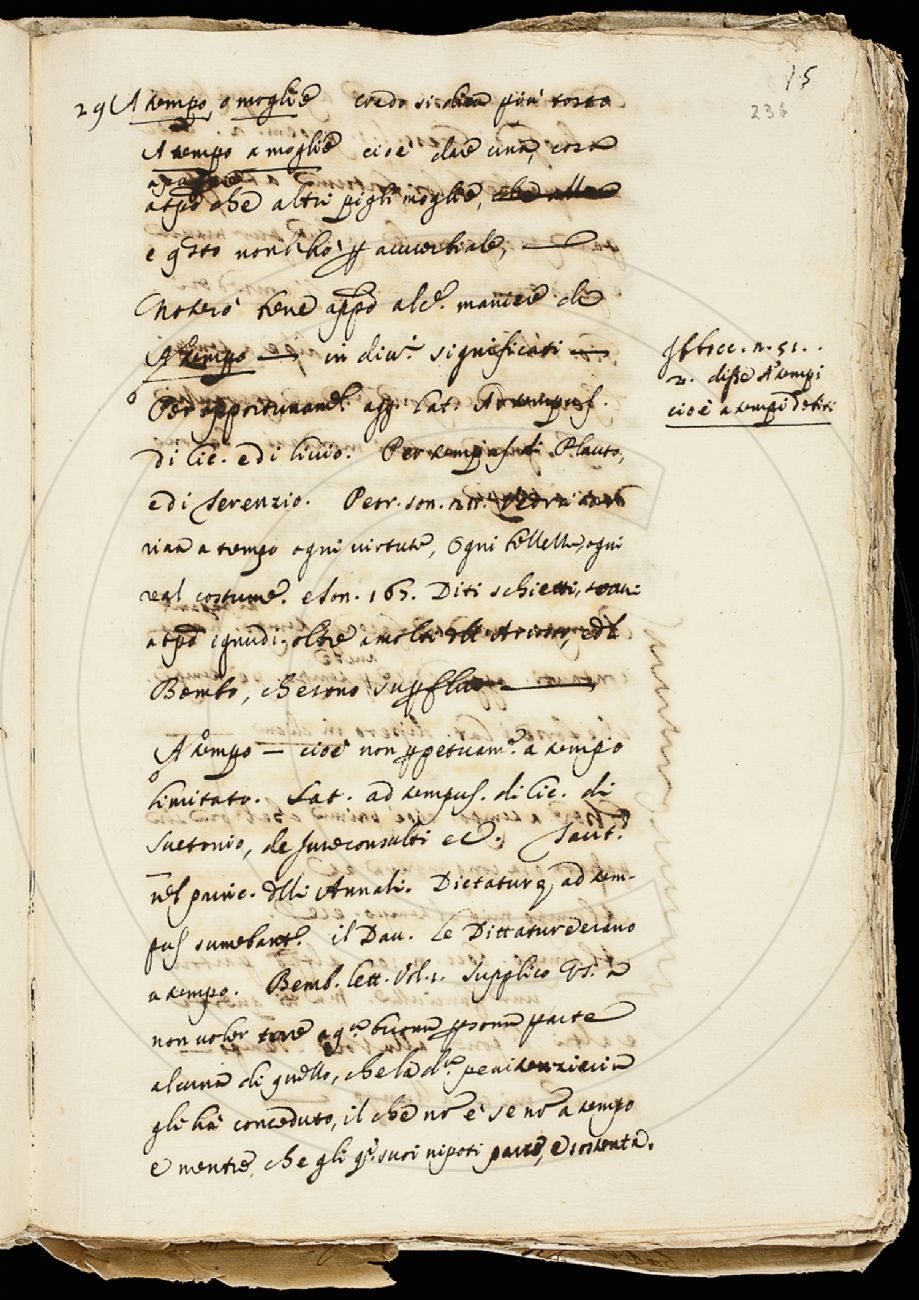 15
236
29 A tempo, o moglie credo si dica piu tosto
A tempo a moglie cioè dare una, cosa
atpo che altri pigli moglie,
e qsto non l'hò p avverbiale,
Noterò bene appo alc. maniere di
A tempo — in div. significati —
Per opportunamte. app. Lat. Ad tempus.
di Cic. e di Livio. Per tempus di Plauto,
e di Terenzio. Petr. son.
a tempo ogni virtute, Ogni bellezza, ogni
real costume. e son. 165. Diti schietti, soavi
a tpo ignudi; oltre a molti dll Ariosto, e dl
Bembo, che sono supflui —
A tempo — cioè non ppetuam. a tempo
limitato. Lat. ad tempus. di Cic. di
Suetonio, de Jureconsulti ec. Tacit.
nel princ. dlli Annali. Dictaturę, ad tem-
pus sumebant. il Dav. Le Dittature erano
a tempo. Bemb. lett. Vol. 1. Supplico VS. a
non voler torre a qta. buona psona parte
alcuna di quello, che la d. penitenzieria
gli hà conceduto, il che nō è se nō a tempo
e mentre, che gli qi. suoi nipoti
Bocc. n. 51.
2. disse A tempi
cioè a tempi debiti